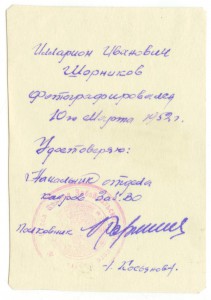 Илларион Иванович
Шорников
Фотографировался
10го Марта 1952г.
Удостоверяю:
Начальник отдела
кадров ЗабВО
Полковник